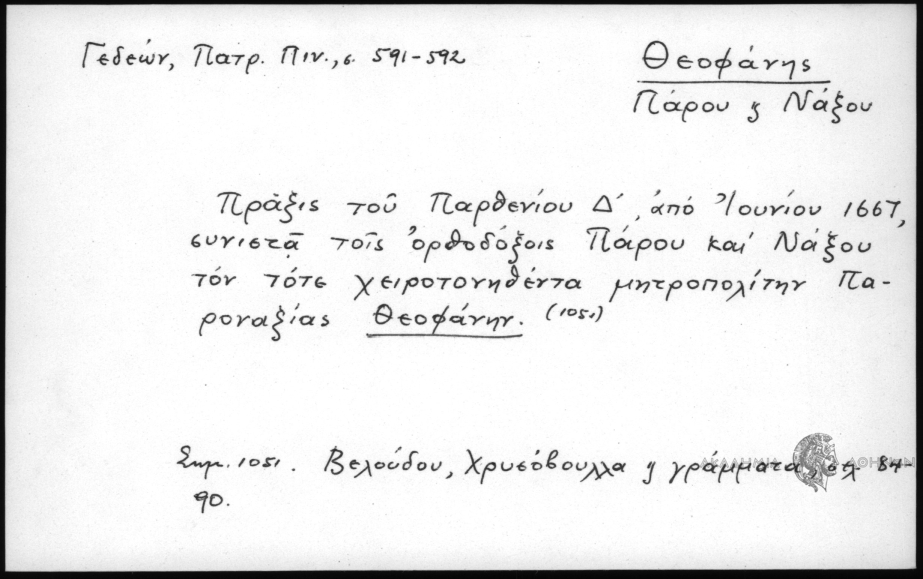 Γεδεών, Πατρ. Πιν., σ. 591-592
Θεοφάνης
Πάρου ϗ Νάξου
Πρᾶξις τοῦ Παρθενίου Δ΄, ἀπό Ἰουνίου 1667,
συνιστᾷ τοῖς ὀρθοδόξοις Πάρου καί Νάξου
τόν τότε χειροτονηθέντα μητροπολίτην Πα-
ροναξίας Θεοφάνην. (1051)
Σημ. 1051. Βελούδου, Χρυσόβουλλα ϗ γράμματα, σελ 84-
90.
ΑΚΑΔΗΜΙΑ ΑΘΗΝΩΝ